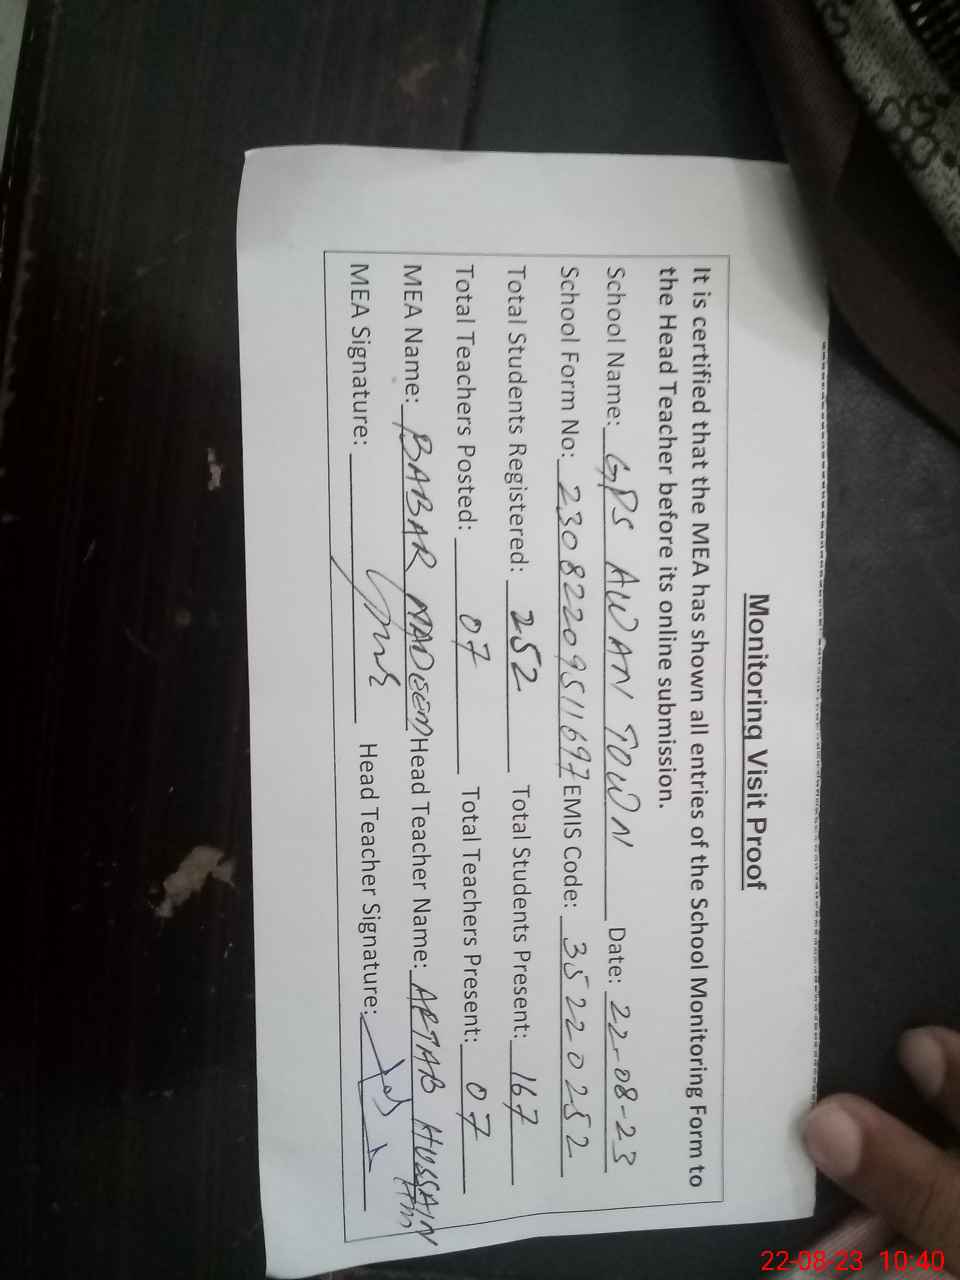 Monitoring Visit Proof
It is certified that the MEA has shown all entries of the School Monitoring Form to
the Head Teacher before its online submission.
School Name: GPS AWAN TOWN Date: 22-08-23
School Form No: 23082209511697 EMIS Code: 35220252
Total Students Registered: 252 Total Students Present: 167
Total Teachers Posted: 07 Total Teachers Present: 07
MEA Name: BABAR NADEEM Head Teacher Name: AFTAB HUSSAIN
MEA Signature: Head Teacher Signature:
22-08-23 10:40